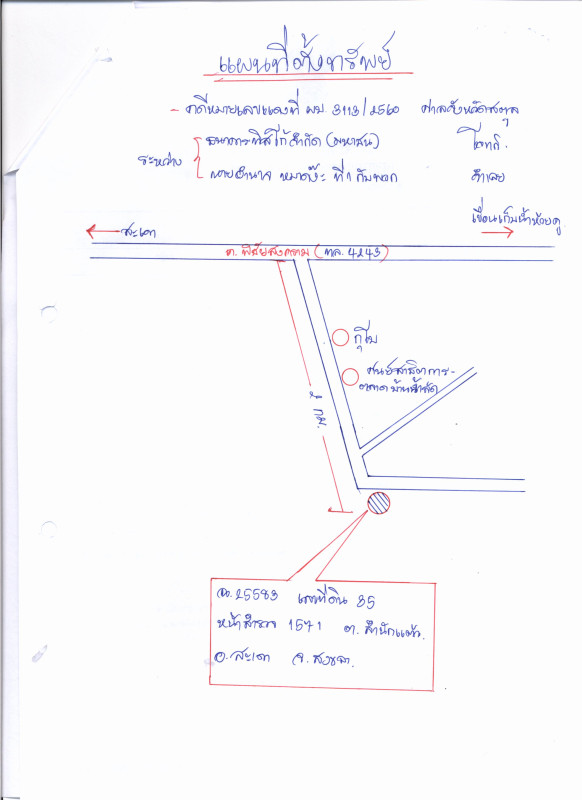 แผนที่ตั้งทรัพย์
- คดีหมายเลขแดงที่ ผบ 3113/2560 ศาลจังหวัดสตูล
ระหว่าง
ธนาคารพิสิโก้จำกัด (มหาชน) โจทก์
นายอำนาจ หมาดง๊ะ ที่1 กับพวก จำเลย
สะเดา
เขื่อนเก็บน้ำห้วยคู
ถ.พิชัยสงคราม (ทล. 4243)
กุโบ
ศูนย์สาธิตการ-
ตลาด
2 กม.
ฉ.25583 เลขที่ดิน 35
หน้าสำรวจ 1571 ต. สำนักแต้ว
อ.สะเดา จ.สงขลา